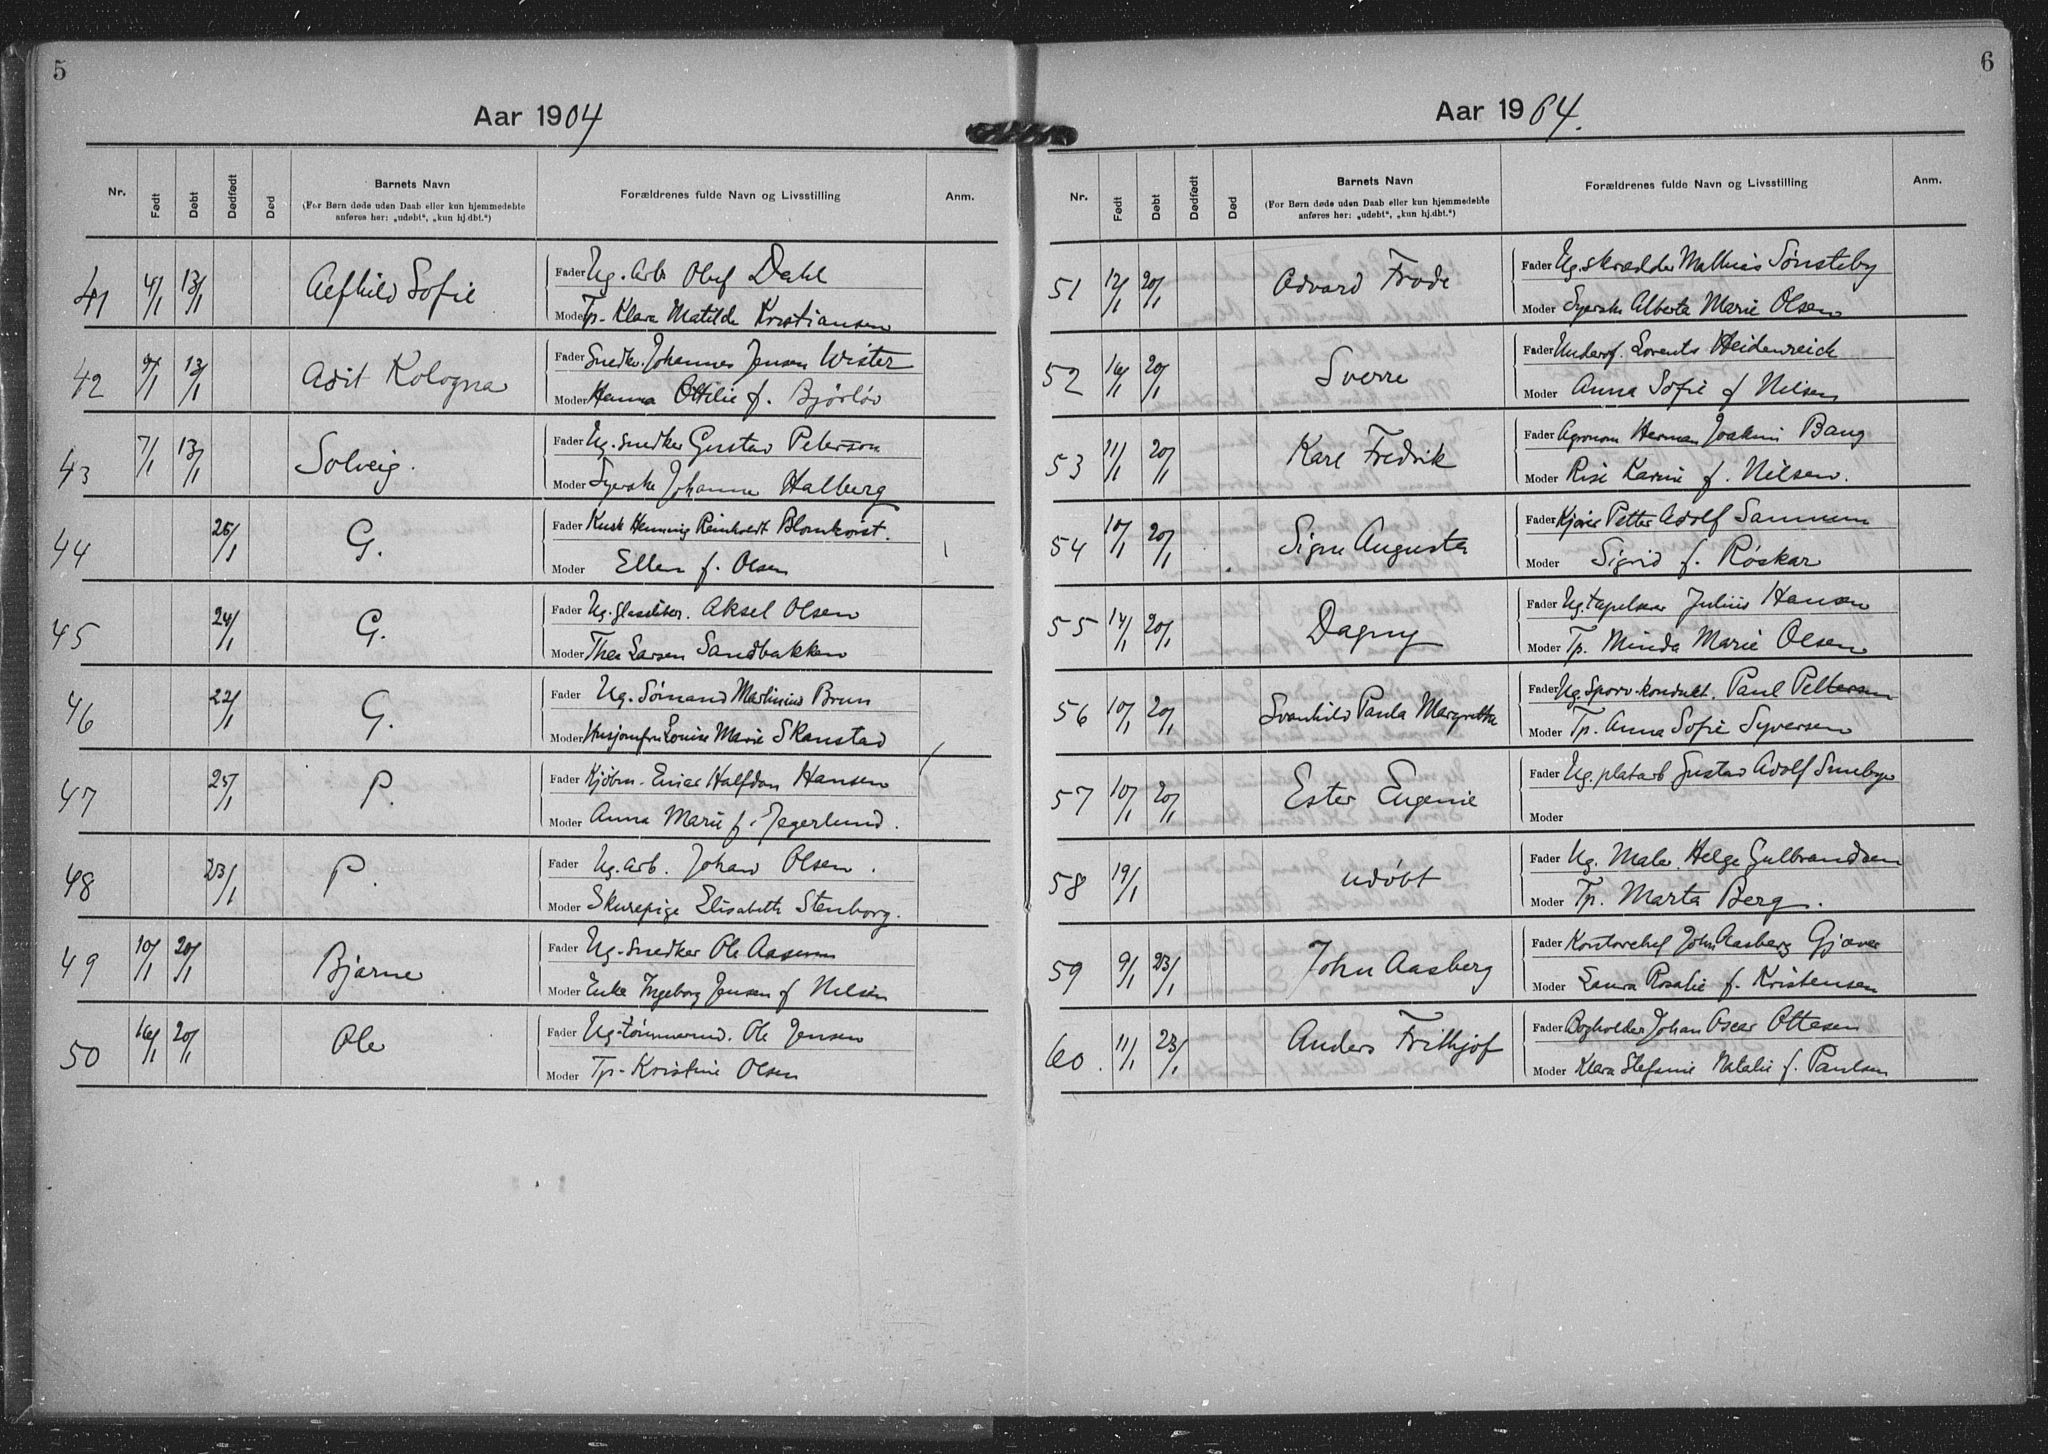 5
Aar 1904
Nr. Født Døbt Dødfødt Død Barnets Navn Forældrenes fulde Navn og Livsstilling Anm.
(For Børn døde uden Daab eller kun hjemmedøbte
anføres her: „udøbt“, „kun hj.dbt.“)
41 4/1 13/1 Alfhild Sofie Fader Ug. Arb. Oluf Dahl
Moder Tp. Klara Matilde Kristiansen
42 9/1 13/1 Adit Kologna Fader Snedk. Johannes Jensen Wister
Moder Hanna Ottilie f. Bjørløv
43 7/1 13/1 Solveig. Fader Ug. snedker Gustav Peterson
Moder Syerske Johanne Halberg
44 25/1 G. Fader Kusk Henning Reinholdt Blomkvist.
Moder Ellen f. Olsen
45 24/1 G. Fader Ug. glassliber. Aksel Olsen
Moder Thea Larsen Sandbakken
46 22/1 G. Fader Ug. Sømand Martinius Brun
Moder Husjomfru Louise Marie Skanstad
47 25/1 P. Fader Kjøbm. Einar Halfdan Hansen
Moder Anna Marie f. Jegerlund.
48 23/1 P. Fader Ug. Arb. Johan Olsen.
Moder Skurepige Elisabeth Stenborg.
49 10/1 20/1 Bjarne Fader Ug. Snedker Ole Aasen
Moder Enke Ingeborg Jensen f Nilsen
50 16/1 20/1 Ole Fader Ug. tømmermd. Ole Jensen
Moder Tp. Kristine Olsen
6
Aar 1904.
Nr. Født Døbt Dødfødt Død Barnets Navn Forældrenes fulde Navn og Livsstilling Anm.
(For Børn døde uden Daab eller kun hjemmedøbte
anføres her: „udøbt“, „kun hj.dbt.“)
51 12/1 20/1 Advard Frode Fader Ug. skrædder Mathias Sønsteby
Moder Syerske Alberta Marie Olsen
52 16/1 20/1 Sverre Fader Underof. Lorents Heidenreich
Moder Anna Sofie f Nilsen
53 11/1 20/1 Karl Fredrik Fader Agronom Herman Joakim Bang
Moder Risi Karine f. Nilsen.
54 10/1 20/1 Signe Augusta Fader Kjører Petter Adolf Sammum
Moder Sigrid f. Røskar
55 14/1 20/1 Dagny Fader Ug. tapetserer Julius Hansen
Moder Tp. Minda Marie Olsen
56 10/1 20/1 Svanhild Paula Margretha Fader Ug. Sporv.kondukt. Paul Pettersen
Moder Tp. Anna Sofie Syversen
57 10/1 20/1 Ester Eugenie Fader Ug. platarb Gustav Adolf Smebye
Moder
58 19/1 udøbt Fader Ug. Maler Helge Gulbrandsen
Moder Tp. Marta Berg.
59 9/1 23/1 John Aasberg Fader Kontorchef John Aasberg Gjæver
Moder Laura Rosalie f. Kristensen
60. 11/1 23/1 Anders Frithjof Fader Bogholder Johan Oscar Ottesen
Moder Klara Stefanie Natalie f. Paulsen